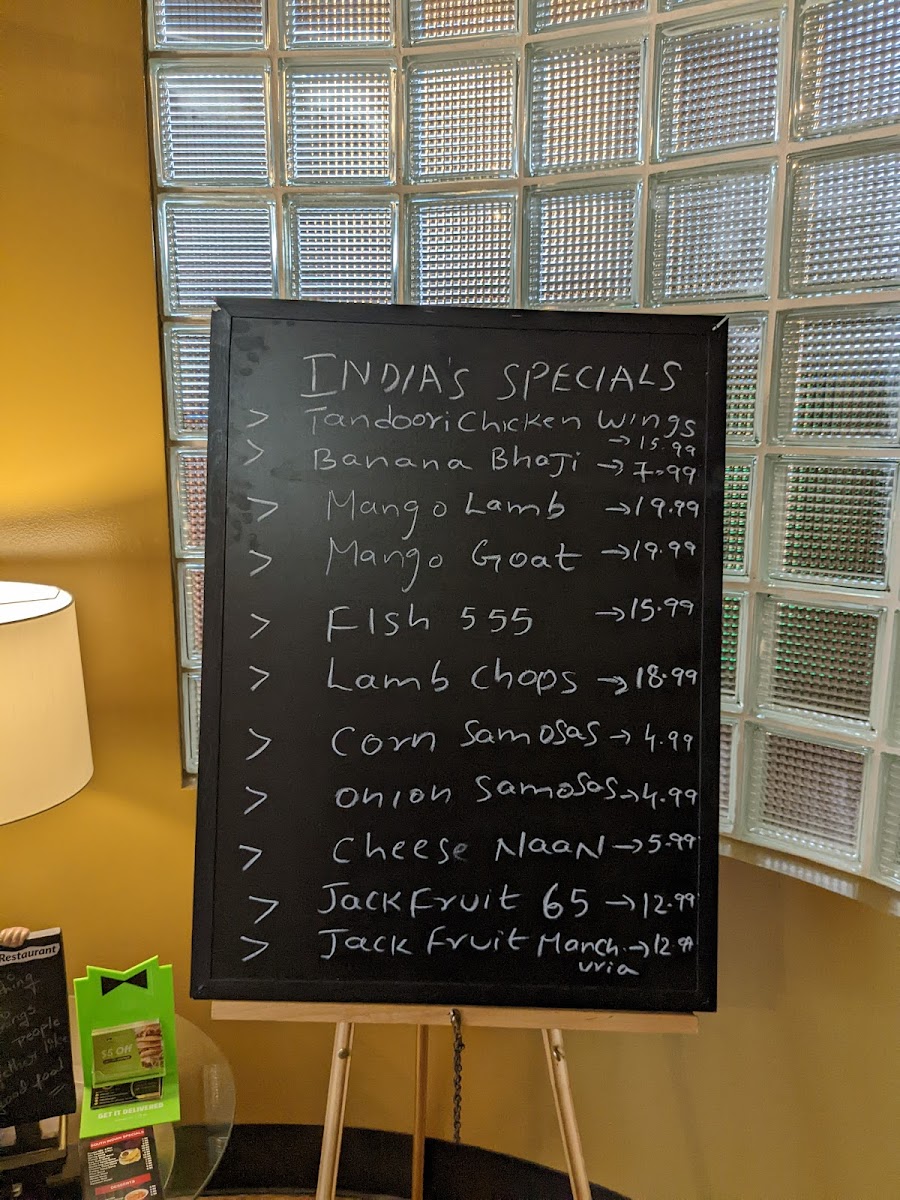 INDIA'S SPECIALS
> Tandoori Chicken Wings
→ 15.99
> Banana Bhaji → 7.99
> Mango Lamb → 19.99
> Mango Goat → 19.99
> FIsh 555 → 15.99
> Lamb Chops → 18.99
> Corn Samosas → 4.99
> Onion Samosas → 4.99
> Cheese NaaN → 5.99
> JackFruit 65 → 12.99
> Jack Fruit Manch → 12.99
uria
Restaurant
people
good food
$5 Off
GET IT DELIVERED